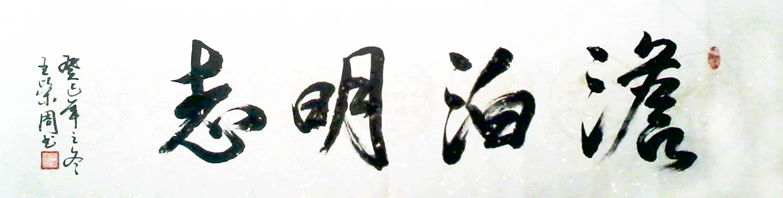 澹泊明志
癸巳年之冬
王以荣周书